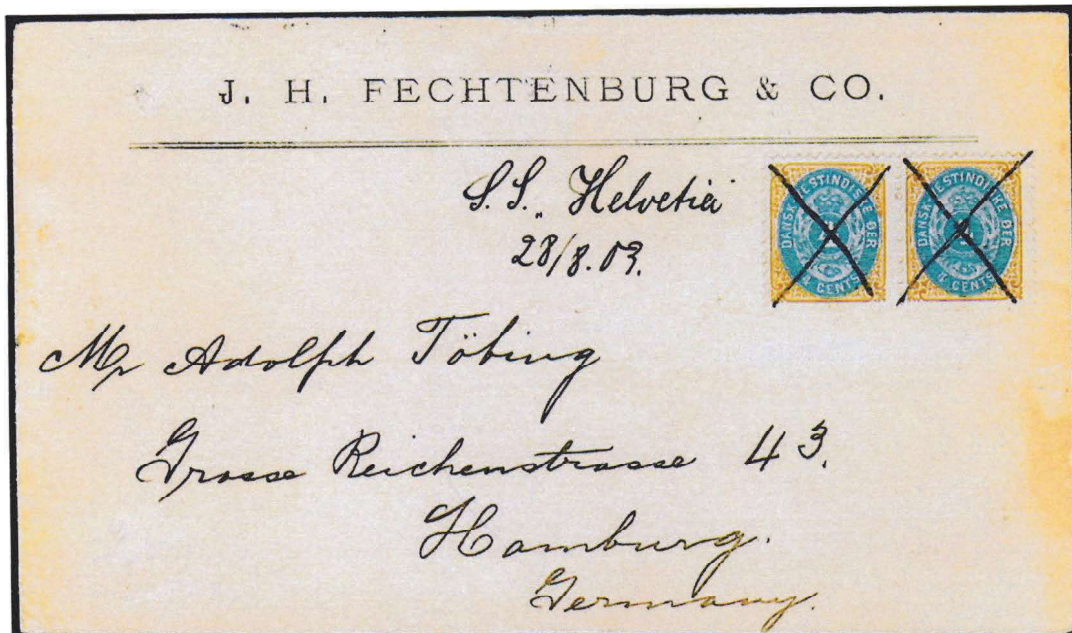 J. H. FECHTENBURG & CO.
S.S. „ Helvetia
28/8.03.
DANSK VESTINDISKE ØER
4 CENTS
DANSK VESTINDISKE ØER
4 CENTS
Mr Adolph Töbing
Grosse Reichenstrasse 43.
Hamburg.
Germany.